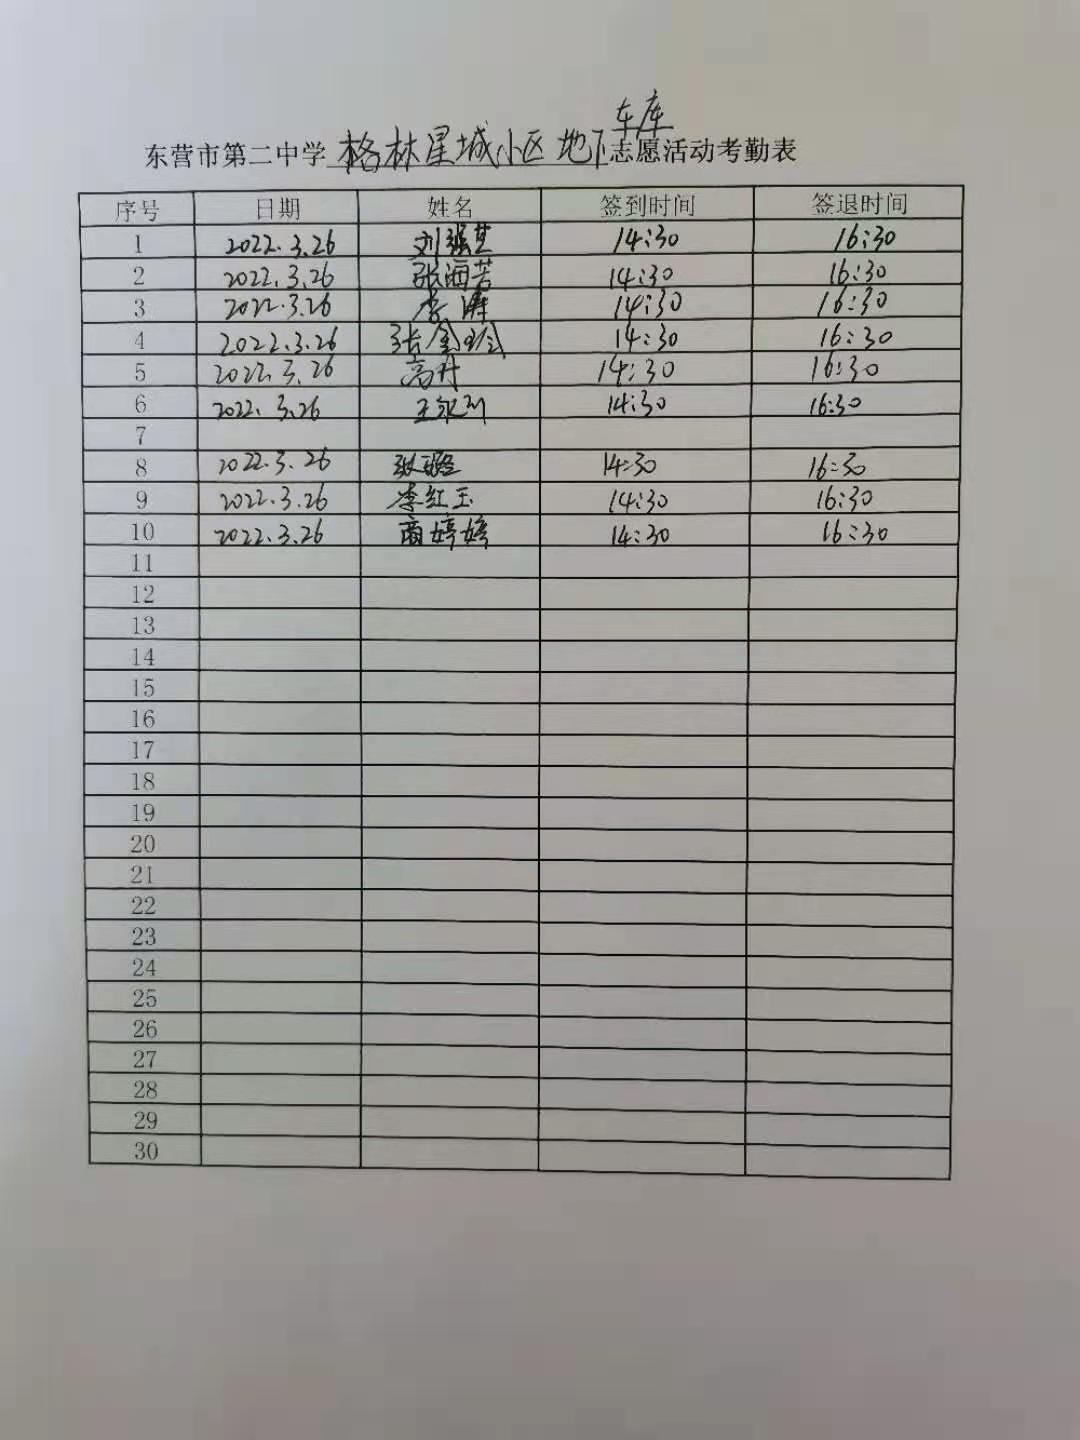 车库
东营市第二中学格林星城小区地下志愿活动考勤表
序号 日期 姓名 签到时间 签退时间
1 2022.3.26 刘强 14:30 16:30
2 2022.3.26 张海芳 14:30 16:30
3 2022.3.26 李涛 14:30 16:30
4 2022.3.26 张金玲 14:30 16:30
5 2022.3.26 高升 14:30 16:30
6 2022.3.26 王永利 14:30 16:30
7
8 2022.3.26 张璐 14:30 16:30
9 2022.3.26 李红玉 14:30 16:30
10 2022.3.26 商婷婷 14:30 16:30
11
12
13
14
15
16
17
18
19
20
21
22
23
24
25
26
27
28
29
30